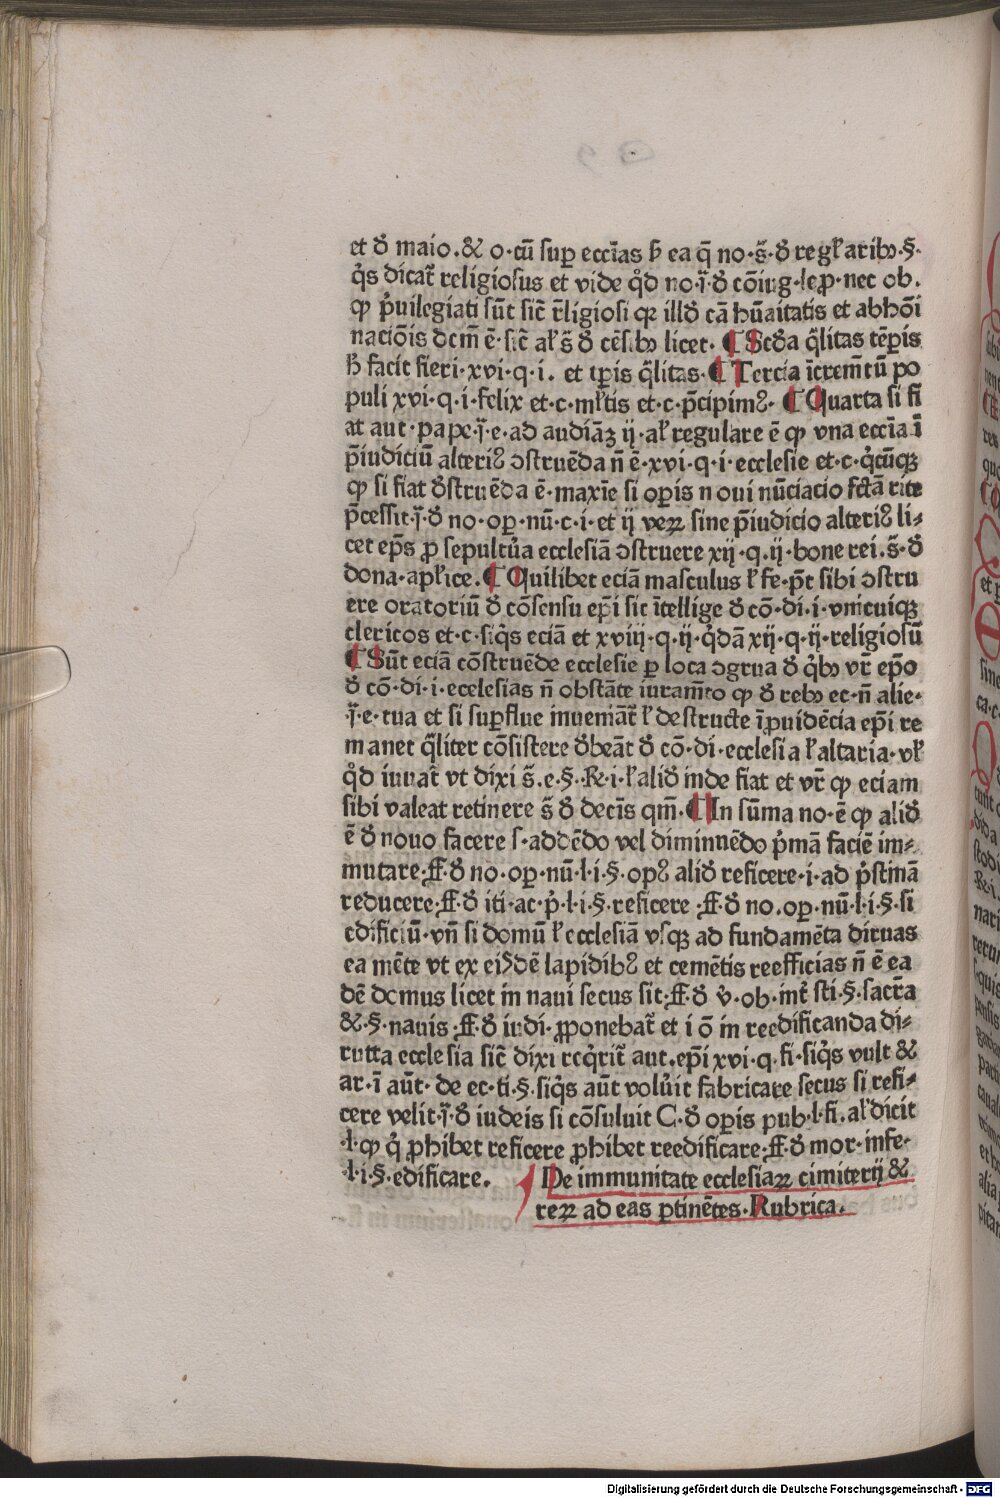 et đ maio.& o·cū suꝑ ecc̄ias ħ ea q̄ no·s̄·đ regl̵aribꝫ·§·
q̇s dicat᷑ religiosus et vide q̇d no·ī·đ cōiug·le ꝓ·nec ob.
ꝙ p̄uilegiati sūt sic̄ r̄ligiosi qꝛ illđ cā hūaitatis et abhōi
nacōnis dcm̄ ē·sic̄ al̵ s̄ đ cēsibꝫ licet· ¶ Scđa q̄litas tēꝑis
ħ facit fieri·xvi·q·i. et tꝑis q̄litas·¶ Tercia īcrem̄tū po
puli xvi·q·i·felix et·c·ml̵tis et·c·p̄cipimꝰ· ¶ Quarta si fi
at aut·pape·ī·e·ad audiāꝫ ij·al̵ regulare ē ꝙ vna ecc̄ia ī
p̄iudiciū alteriꝰ ꝯstruēda n̄ ē·xvi·q·i·ecclesie et·c·q̇cūqꝫ
ꝙ si fiat đstruēda ē·maxīe si oꝑis noui nūciacio fctā rite
p̄cessit·ī·đ no·oꝑ·nū·c·i·et ij veꝝ sine p̄iudicio alteriꝰ li⸗
cet ep̄s ꝓ sepultūa ecclesiā ꝯstruere xij·q·ij·bone rei.s̄·đ
dona·apl̵ice.¶ Quilibet eciā masculus l̵ fe·p̄t sibi ꝯstru
ere oratoriū đ cōsensu ep̄i sic ītellige đ cō·di·i·vnicuiqꝫ
clericos et·c·siq̇s eciā et xviij·q·ij·q̇dā xij·q·ij·religiosū
¶ Sūt eciā cōstruēde ecclesie ꝑ loca ꝯgrua đ q̇bꝫ vr̄ ep̄o
đ cō·di·i·ecclesias n̄ obstāte iuram̄to ꝙ đ rebꝫ ec·n̄ alie·
·ī·e·tua et si suꝑflue inueniāt᷑ l̵ destructe īꝓuidēcia ep̄i re
manet q̄liter cōsistere đbeāt đ cō·di·ecclesia l̵ altaria·vl̵
q̇d iuuat᷑ vt dixi s̄.e.§.R·i·l̵ aliđ inde fiat et vr̄ ꝙ eciam
sibi valeat retinere s̄ đ decīs qm̄·¶ In sūma no·ē ꝙ aliđ
ē đ nouo facere s·addēdo vel diminuēdo p̄mā faciē im⸗
mutare·ff·đ no·oꝑ·nū·l·i·§·opꝰ aliđ reficere·i·ad p̄stinā
reducere·ff·đ iti·ac·p̄·l·i·§·reficere·ff·đ no.oꝑ·nū·l·i·§·si
edificiū·vn̄ si domū l̵ ecclesiā vsqꝫ ad fundamēta diruas
ea mēte vt ex eisdē lapidibꝰ et cemētis reefficias n̄ ē ea
dē domus licet in naui secus sit·ff·đ v̇·ob·int᷑ sti·§·sacr̄a
&·§·nauis·ff·đ iudi·ꝓponebat᷑ et i ō in reedificanda di⸗
rutta ecclesia sic̄ dixi req̇rit᷑ aut.ep̄i xvi·q·fi·siq̇s vult &
ar·ī aūt·de ec·ti·§·siq̇s aūt volūit fabricare secus si refi⸗
cere velit·ī·đ iudeis si cōsuluit C·đ oꝑis pub·l·fi.al̵ dicit
·l·ꝙ q̇ ꝓhibet reficere ꝓhibet reedificare·ff·đ mor·infe·
·l·i·§·edificare. De immunitate ecclesiaꝝ cimiterij &
reꝝ ad eas ꝑtinētes·Rubrica.
Digitalisierung gefördert durch die Deutsche Forschungsgemeinschaft - DFG